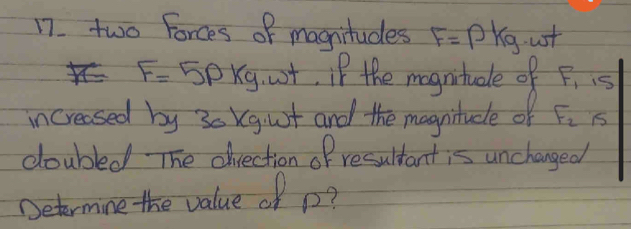 17- two forces of magnitudes F = P Kg.wt
F = 5P Kg.wt. if the magnitude of F₁ is
increased by 30 Kg.wt and the magnitude of F₂ is
doubled The direction of resultant is unchanged
Determine the value of p?